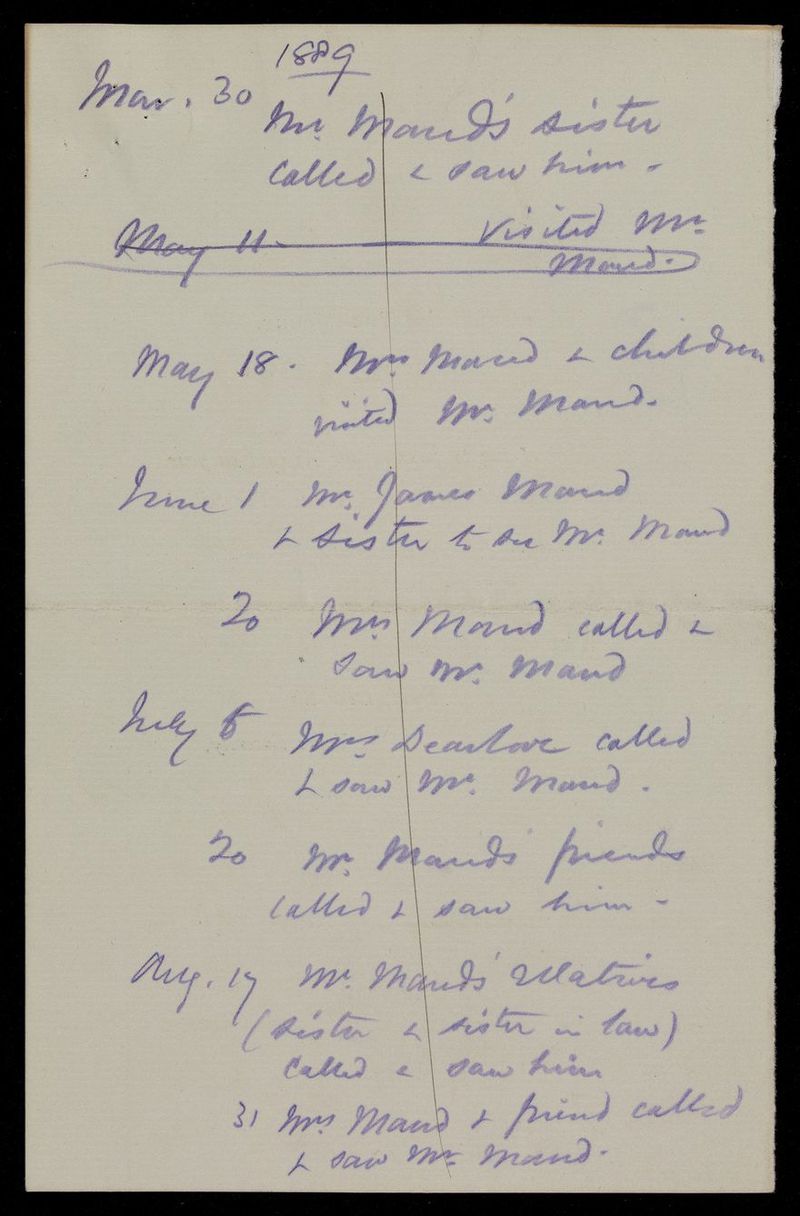 1889
Mar. 30
Mr. Maud's sister
called & saw him -
May 11 - visited Mr.
Maud.
May 18. Mrs Maud & children
visited Mr. Maud.
June 1 Mr. James Maud
& sister to see Mr. Maud
20 Mrs Maud called &
saw Mr. Maud
July 6 Mrs Dearlove called
& saw Mr. Maud.
20 Mr. Maud's friends
called & saw him -
Aug. 17 Mr. Maud's relatives
(sister & sister in law)
called & saw him
31 Mrs Maud & friend called
& saw Mr. Maud.